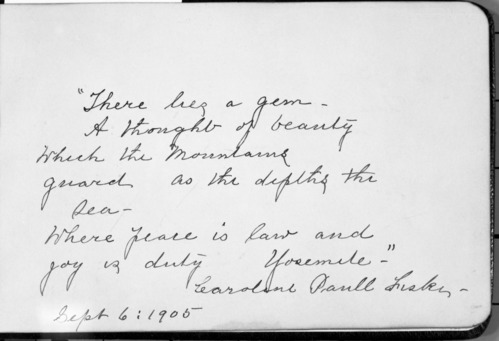 "There lies a gem -
A thought of beauty
Which the Mountains
guard as the depths the
sea -
Where peace is law and
joy is duty Yosemite -"
Caroline Paull
Sept 6: 1905